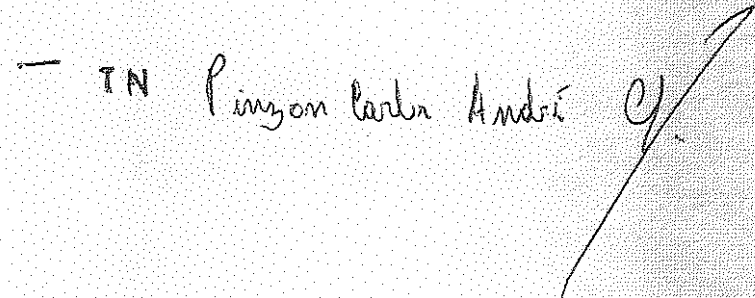 — TN Pinzon Carlos André